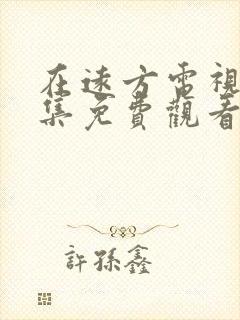 在遠方電視
集免費觀看
許孫鑫